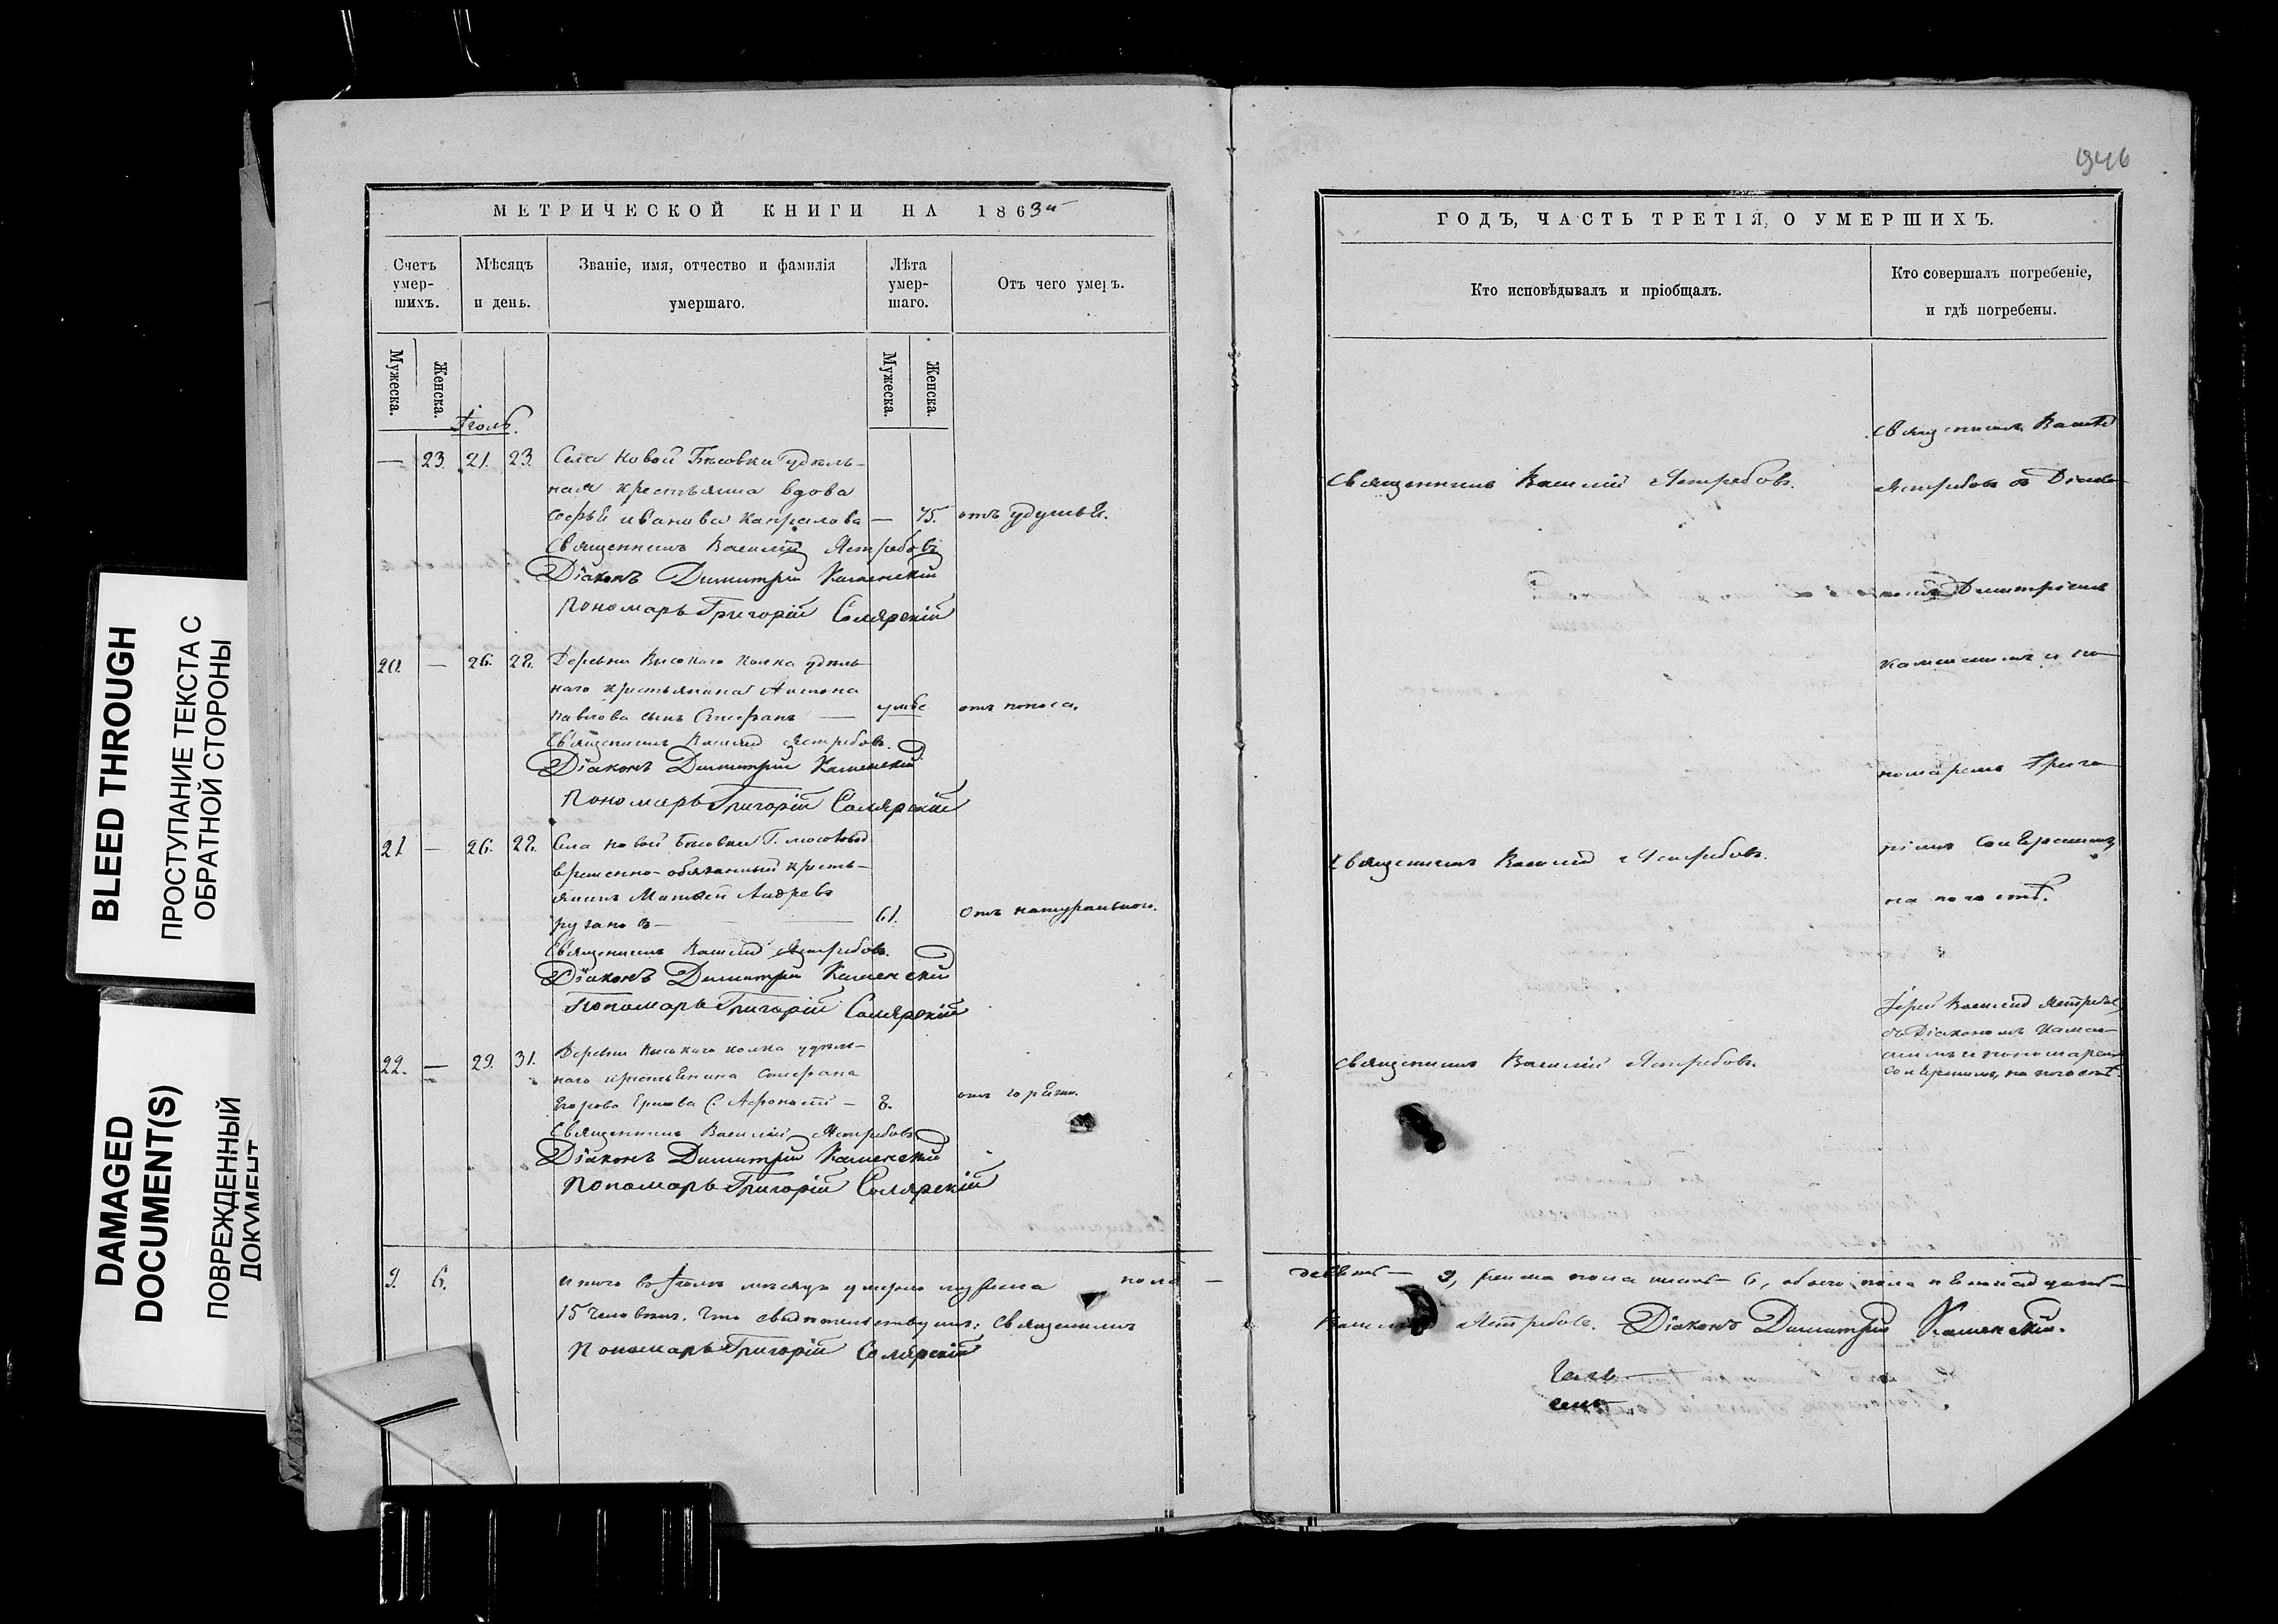 BLEED THROUGH
ПРОСТУПАНИЕ ТЕКСТА С
ОБРАТНОЙ СТОРОНЫ
DAMAGED
DOCUMENT(S)
ПОВРЕЖДЕННЫЙ
ДОКУМЕНТ
МЕТРИЧЕСКОЙ КНИГИ НА 1863й
Счетъ
умер-
шихъ.
Мѣсяцъ
и день.
Званіе, имя, отчество и фамилія
умершаго.
Лѣта
умер-
шаго.
Отъ чего умеръ.
Мужеска.
Женска.
Мужеска.
Женска.
Іюль.
— 23. 21. 23. Села Новой Бѣсовки удѣль-
ная крестьянка вдова
Софья Иванова Капралова — 75. отъ удушья.
Священникъ Василій Ястребовъ
Діаконъ Димитрій Каменскій
Пономарь Григорій Солярскій
20. — 26. 28. Деревни Высокаго Колка удѣль-
наго крестьянина
Павлова сынъ Стефанъ — отъ поноса.
Священникъ Василій Ястребовъ.
Діаконъ Димитрій Каменскій
Пономарь Григорій Солярскій
21 — 26. 28. Села Новой Бѣсовки Г.
временно-обязанный кресть-
янинъ Матвей Андреевъ
— 61. Отъ натуральной.
Священникъ Василій Ястребовъ.
Діаконъ Димитрій Каменскій
Пономарь Григорій Солярскій
22. — 29. 31. Деревни Высокаго Колка удѣль-
наго крестьянина Стефана
Егорова Ершова с. Афанасій — 8. отъ горячки.
Священникъ Василій Ястребовъ
Діаконъ Димитрій Каменскій
Пономарь Григорій Солярскій
9. 6. Итого въ Іюлѣ мѣсяцѣ умерло мужеска пола —
15 человѣкъ. Что свидѣтельствуютъ: Священникъ
Пономарь Григорій Солярскій
946
ГОДЪ, ЧАСТЬ ТРЕТІЯ, О УМЕРШИХЪ.
Кто исповѣдывалъ и пріобщалъ.
Кто совершалъ погребеніе,
и гдѣ погребены.
Священникъ Василій Ястребовъ.
Священникъ Василій
Ястребовъ съ Діако-
номъ Димитріемъ
Каменскимъ и по-
номаремъ Григо-
ріемъ Солярскимъ
на погостѣ.
Священникъ Василій Ястребовъ.
Священникъ Василій Ястребовъ.
Іерей Василій Ястребовъ
съ Діакономъ Камен-
скимъ и пономаремъ
Солярскимъ, на погостѣ.
девять — 9, женска пола шесть — 6, обоего пола пятнадцать —
Василій Ястребовъ. Діаконъ Димитрій Каменскій.